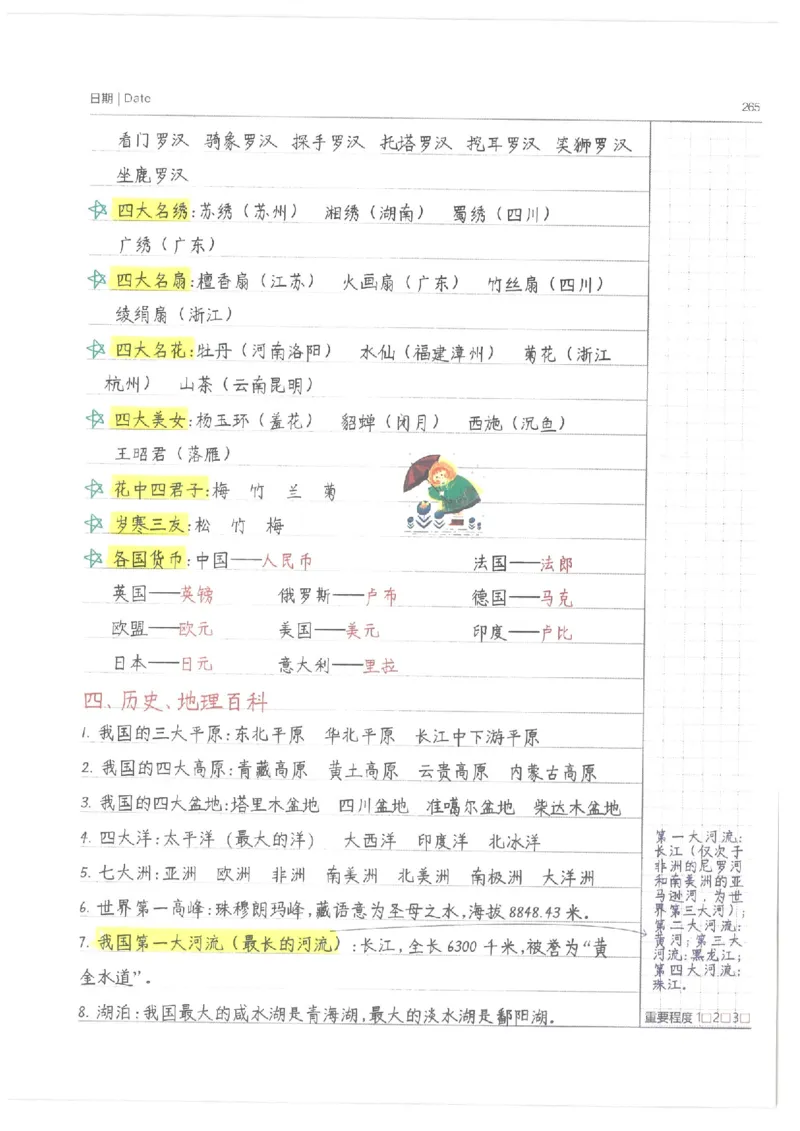 日期 | Date
265
看门罗汉 骑象罗汉 探手罗汉 托塔罗汉 挖耳罗汉 笑狮罗汉
坐鹿罗汉
四大名绣:苏绣(苏州) 湘绣(湖南) 蜀绣(四川)
广绣(广东)
四大名扇:檀香扇(江苏) 火画扇(广东) 竹丝扇(四川)
绫绢扇(浙江)
四大名花:牡丹(河南洛阳) 水仙(福建漳州) 菊花(浙江
杭州) 山茶(云南昆明)
四大美女:杨玉环(羞花) 貂蝉(闭月) 西施(沉鱼)
王昭君(落雁)
花中四君子:梅 竹 兰 菊
岁寒三友:松 竹 梅
各国货币:中国——人民币 法国——法郎
英国——英镑 俄罗斯——卢布 德国——马克
欧盟——欧元 美国——美元 印度——卢比
日本——日元 意大利——里拉
四、历史、地理百科
1. 我国的三大平原:东北平原 华北平原 长江中下游平原
2. 我国的四大高原:青藏高原 黄土高原 云贵高原 内蒙古高原
3. 我国的四大盆地:塔里木盆地 四川盆地 准噶尔盆地 柴达木盆地
4. 四大洋:太平洋(最大的洋) 大西洋 印度洋 北冰洋
5. 七大洲:亚洲 欧洲 非洲 南美洲 北美洲 南极洲 大洋洲
6. 世界第一高峰:珠穆朗玛峰,藏语意为圣母之水,海拔8848.43米。
7. 我国第一大河流(最长的河流):长江,全长6300千米,被誉为“黄
金水道”。
8. 湖泊:我国最大的咸水湖是青海湖,最大的淡水湖是鄱阳湖。
第一大河流:
长江(仅次于
非洲的尼罗河
和南美洲的亚
马逊河,为世
界第三大河);
第二大河流:
黄河;第三大
河流:黑龙江;
第四大河流:
珠江。
重要程度 1□2□3□